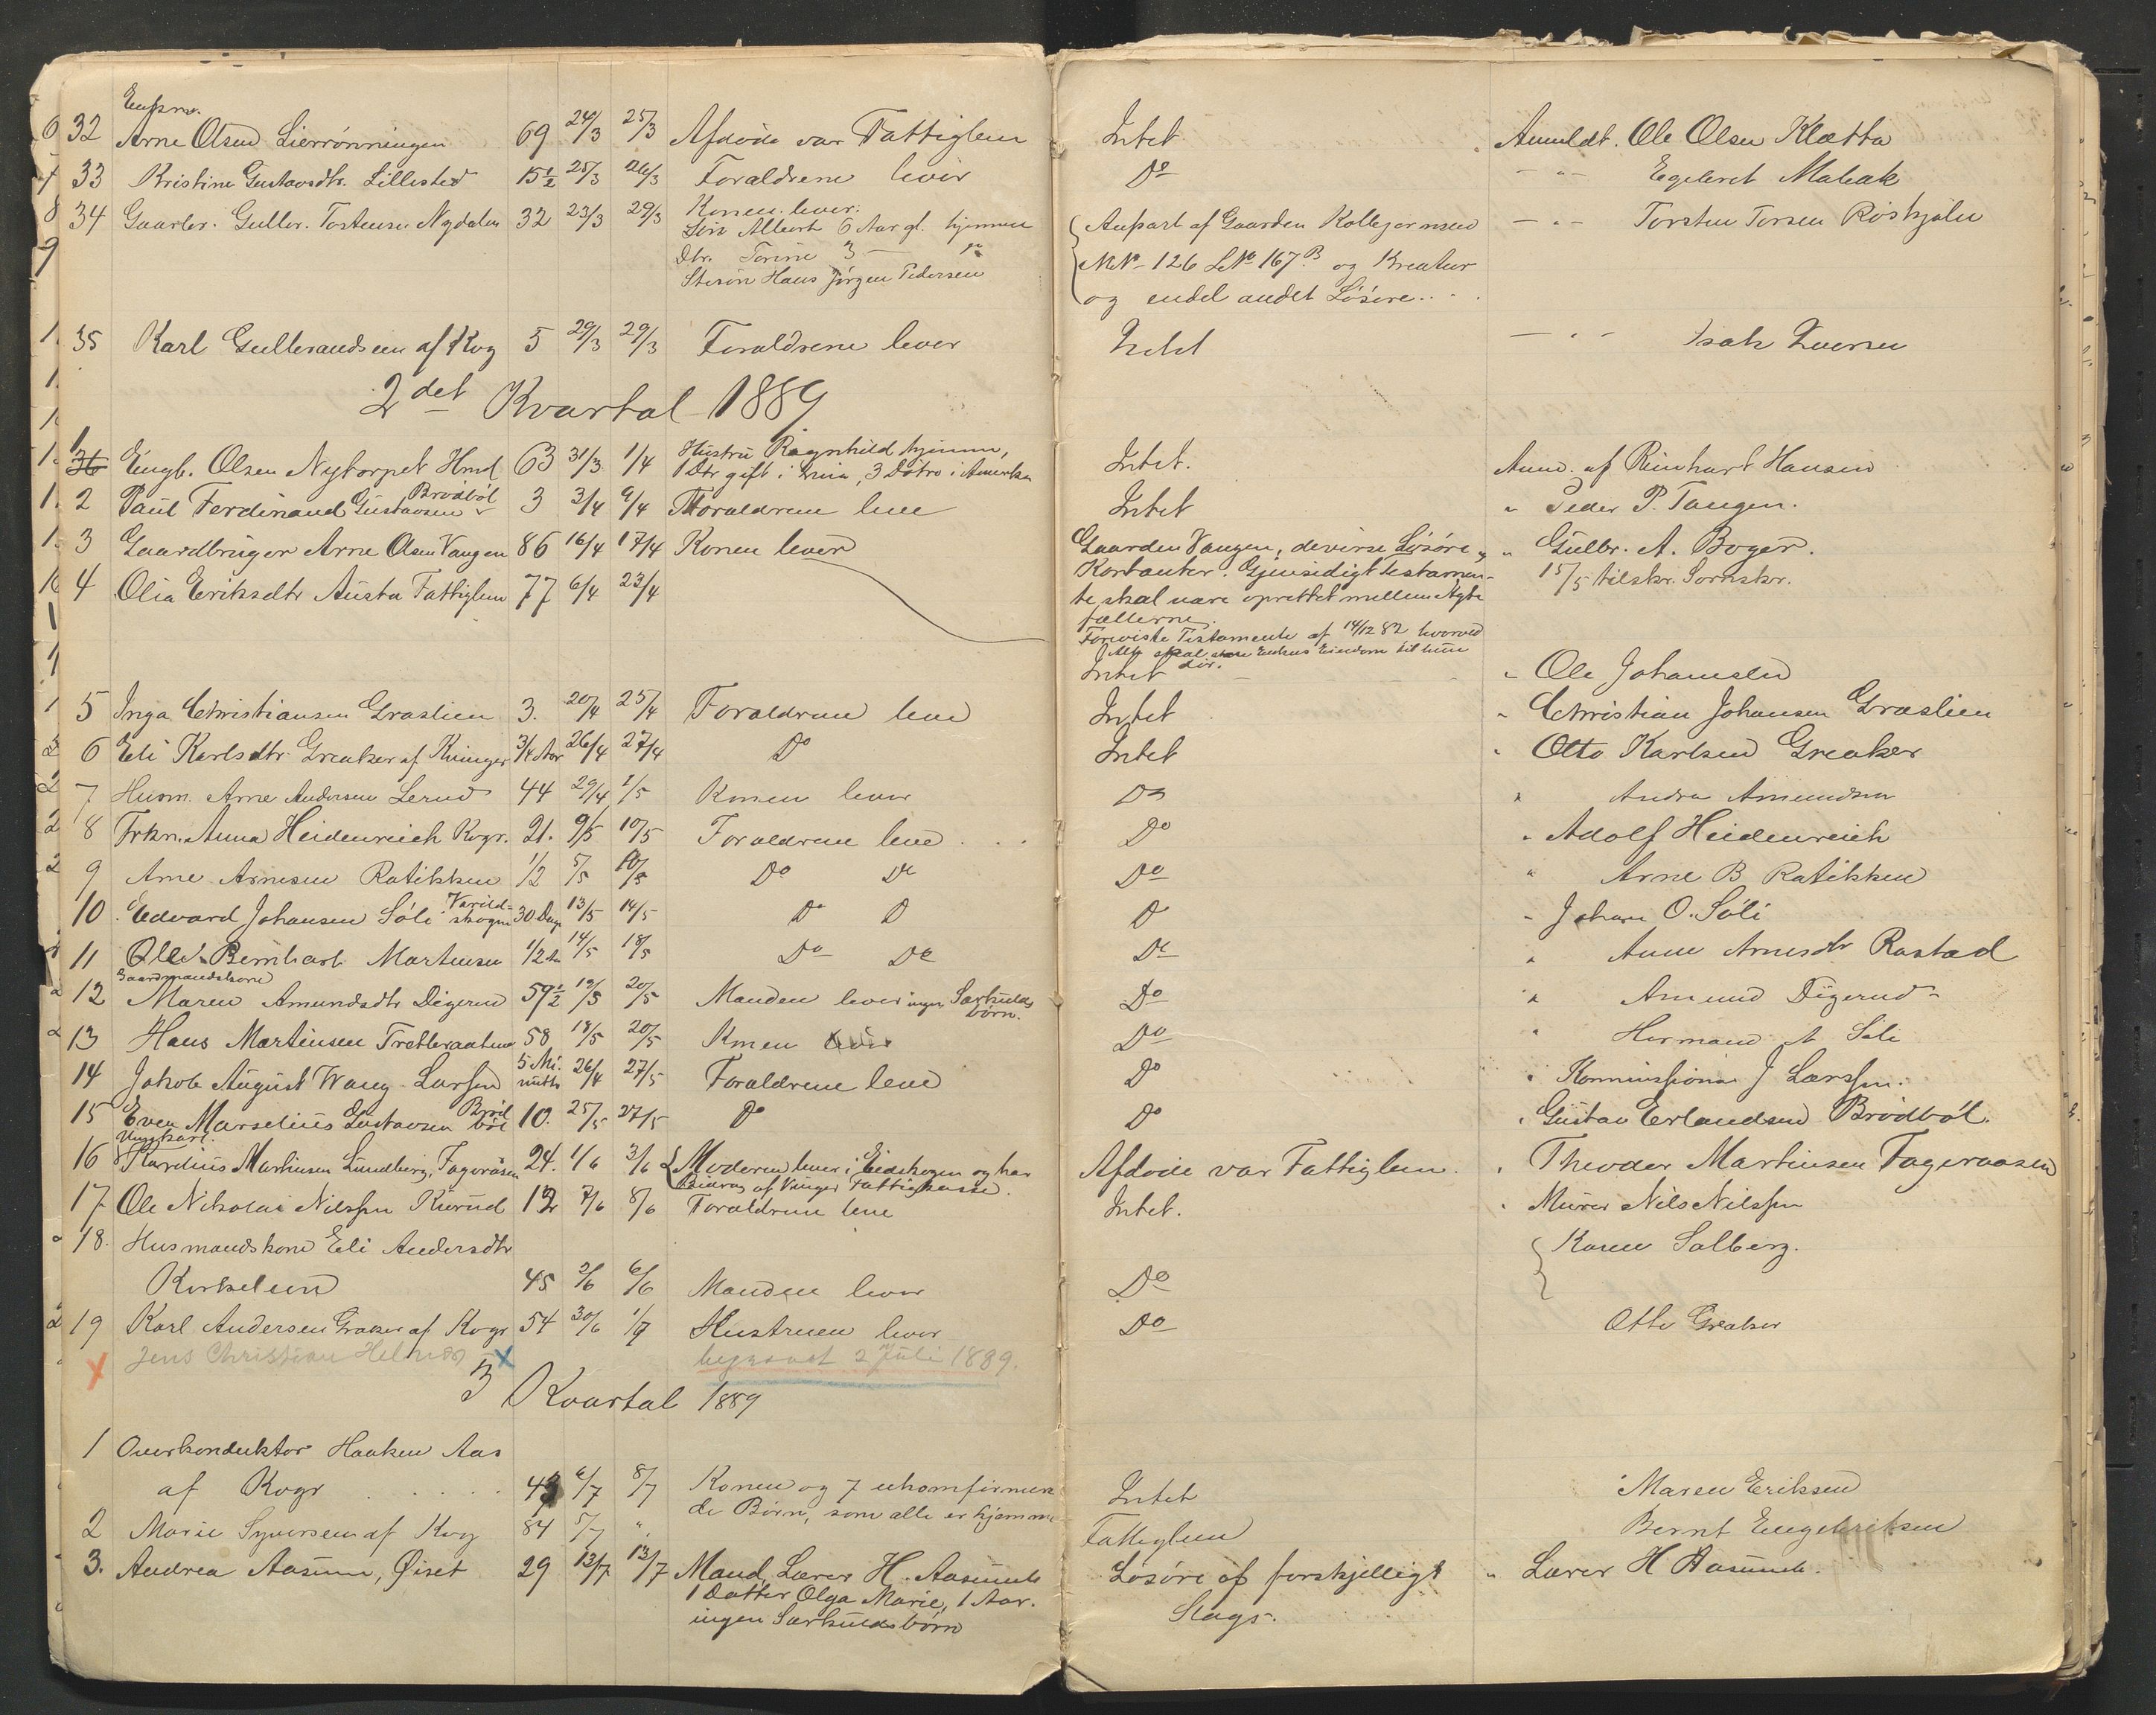 32 Arne Olsen Lierrønningen 69 24/3 25/3 Afdøde var Fattiglem Intet Anmeldt. Ole Olsen Klætta
33 Kristine Gustavsdtr. Lillested 15½ 25/3 26/3 Forældrene lever Do Egebret
34 Gaarbr. Gulbr. Tostensen Nydalen 32 23/3 29/3 Konen lever. Torsten Torsen
Søn Albert 6 Aar gl. hjemme Anpart af Gaarden
Dtr. Torine 3 — Do MNo 126 LNo 167 B og Kreatur
Stesøn Hans Jørgen Pedersen og endel andet Løsøre
35 Karl Gulbrandsen af Kvg 5 29/3 Forældrene lever Intet Isak
2det Kvartal 1889
1 Engb. Olsen Nytorpet Hmd 63 31/3 1/4 Hustru Ragnhild hjemme, Intet. Anm. af Reinhart Hansen
1 Dtr gift i, 3 Døtre i Amerika
Brødbøl
2 Paul Ferdinand Gustavsen 3 3/4 9/4 Forældrene leve Intet " Peder P. Tangen.
3 Gaardbruger Arne Olsen Vangen 86 16/4 17/4 Konen lever Gaarden Vangen, deverse Løsøre, " Gulbr. A. Boger.
4 Olia Eriksdtr Austa Fattiglem 77 6/4 23/4 Kontanter. Gjensidigt testamen- 15/5 tilskr.
te skal være oprettet mellem Ægte
fællerne.
Foreviste Testamente af 14/12 82 hvorved
skal Enkens Eiendom til hun
dør.
Intet " Ole Johansen
5 Inga Christiansen Graslien 3. 20/4 25/4 Forældrene leve Intet " Christian Johansen Graslien
6 Eli Karlsdtr. Greaker af 3/4 Aar 26/4 27/4 Do Intet " Otto Karlsen Greaker
7 Husm. Arne Andersen Lerud 44 29/4 1/5 Konen lever Do " Andrea Amundsen
8 Frkn. Anna Heidenreich Kvgr. 21. 9/5 10/5 Forældrene leve Do " Adolf Heidenreich
9 Arne Arnesen Ratikken 1/2 5/5 10/5 Do Do Do " Arne B Ratikken
Varild-
10 Edvard Johansen Søli skogen 30 Dage 13/5 14/5 Do D D " Johan O. Søli
11 Ole Bernhart Martensen 1/2 14/5 18/5 Do Do Do " Anne Arnesdtr Rastad
Gaardmandskone
12 Maren Amundsdtr Digerud 59½ 19/5 20/5 Manden lever ingen Særkulds Do " Amund Digerud
børn.
13 Hans Martinsen 58 18/5 20/5 Konen lever Do " Herman A Søli
5 Mi-
14 Jakob August Wang-Larsen nutter 26/4 27/5 Forældrene leve Do " J Larssen.
Brød
15 Even Marselius Gustavsen bøl 10. 25/5 27/5 Do Do " Gustav Erlandsen Brødbøl.
Ungkarl.
16 Martinsen Lundberg, Fageraasen 24. 1/6 3/6 Moderen lever i Eidskogen og har Afdøde var Fattiglem. " Theodor Martinsen Fageraasen
Bidrag af Vinger Fattigkasse.
17 Ole Nikolai Nilssen Kurud 12 7/6 8/6 Forældrene leve Intet. " Murer Nils Nilssen
18. Husmandskone Eli Andersdtr Karen Solberg.
45 2/6 6/6 Manden lever Do
19 Karl Andersen Greaker af Kvgr 54 30/6 1/7 Hustruen lever Do Otto Greaker
X Jens Christian X begravet 2 Juli 1889.
3 Kvartal 1889
1 Overkonduktør Haaken Aas
af Kvgr 43 6/7 8/7 Konen og 7 ukonfirmere Intet Maren Eriksen
de Børn, som alle er hjemme
2 Marie Syversen af Kvg 84 5/7 ". Fattiglem Bernt Engebretsen
3. Andrea Aasum, Øiset 29 13/7 13/7 Mand, Lærer H. Aasum Løsøre af forskjelligt " Lærer H Aasum.
1 Datter Olga Marie, 1 Aar. Slags.
ingen Særkuldsbørn